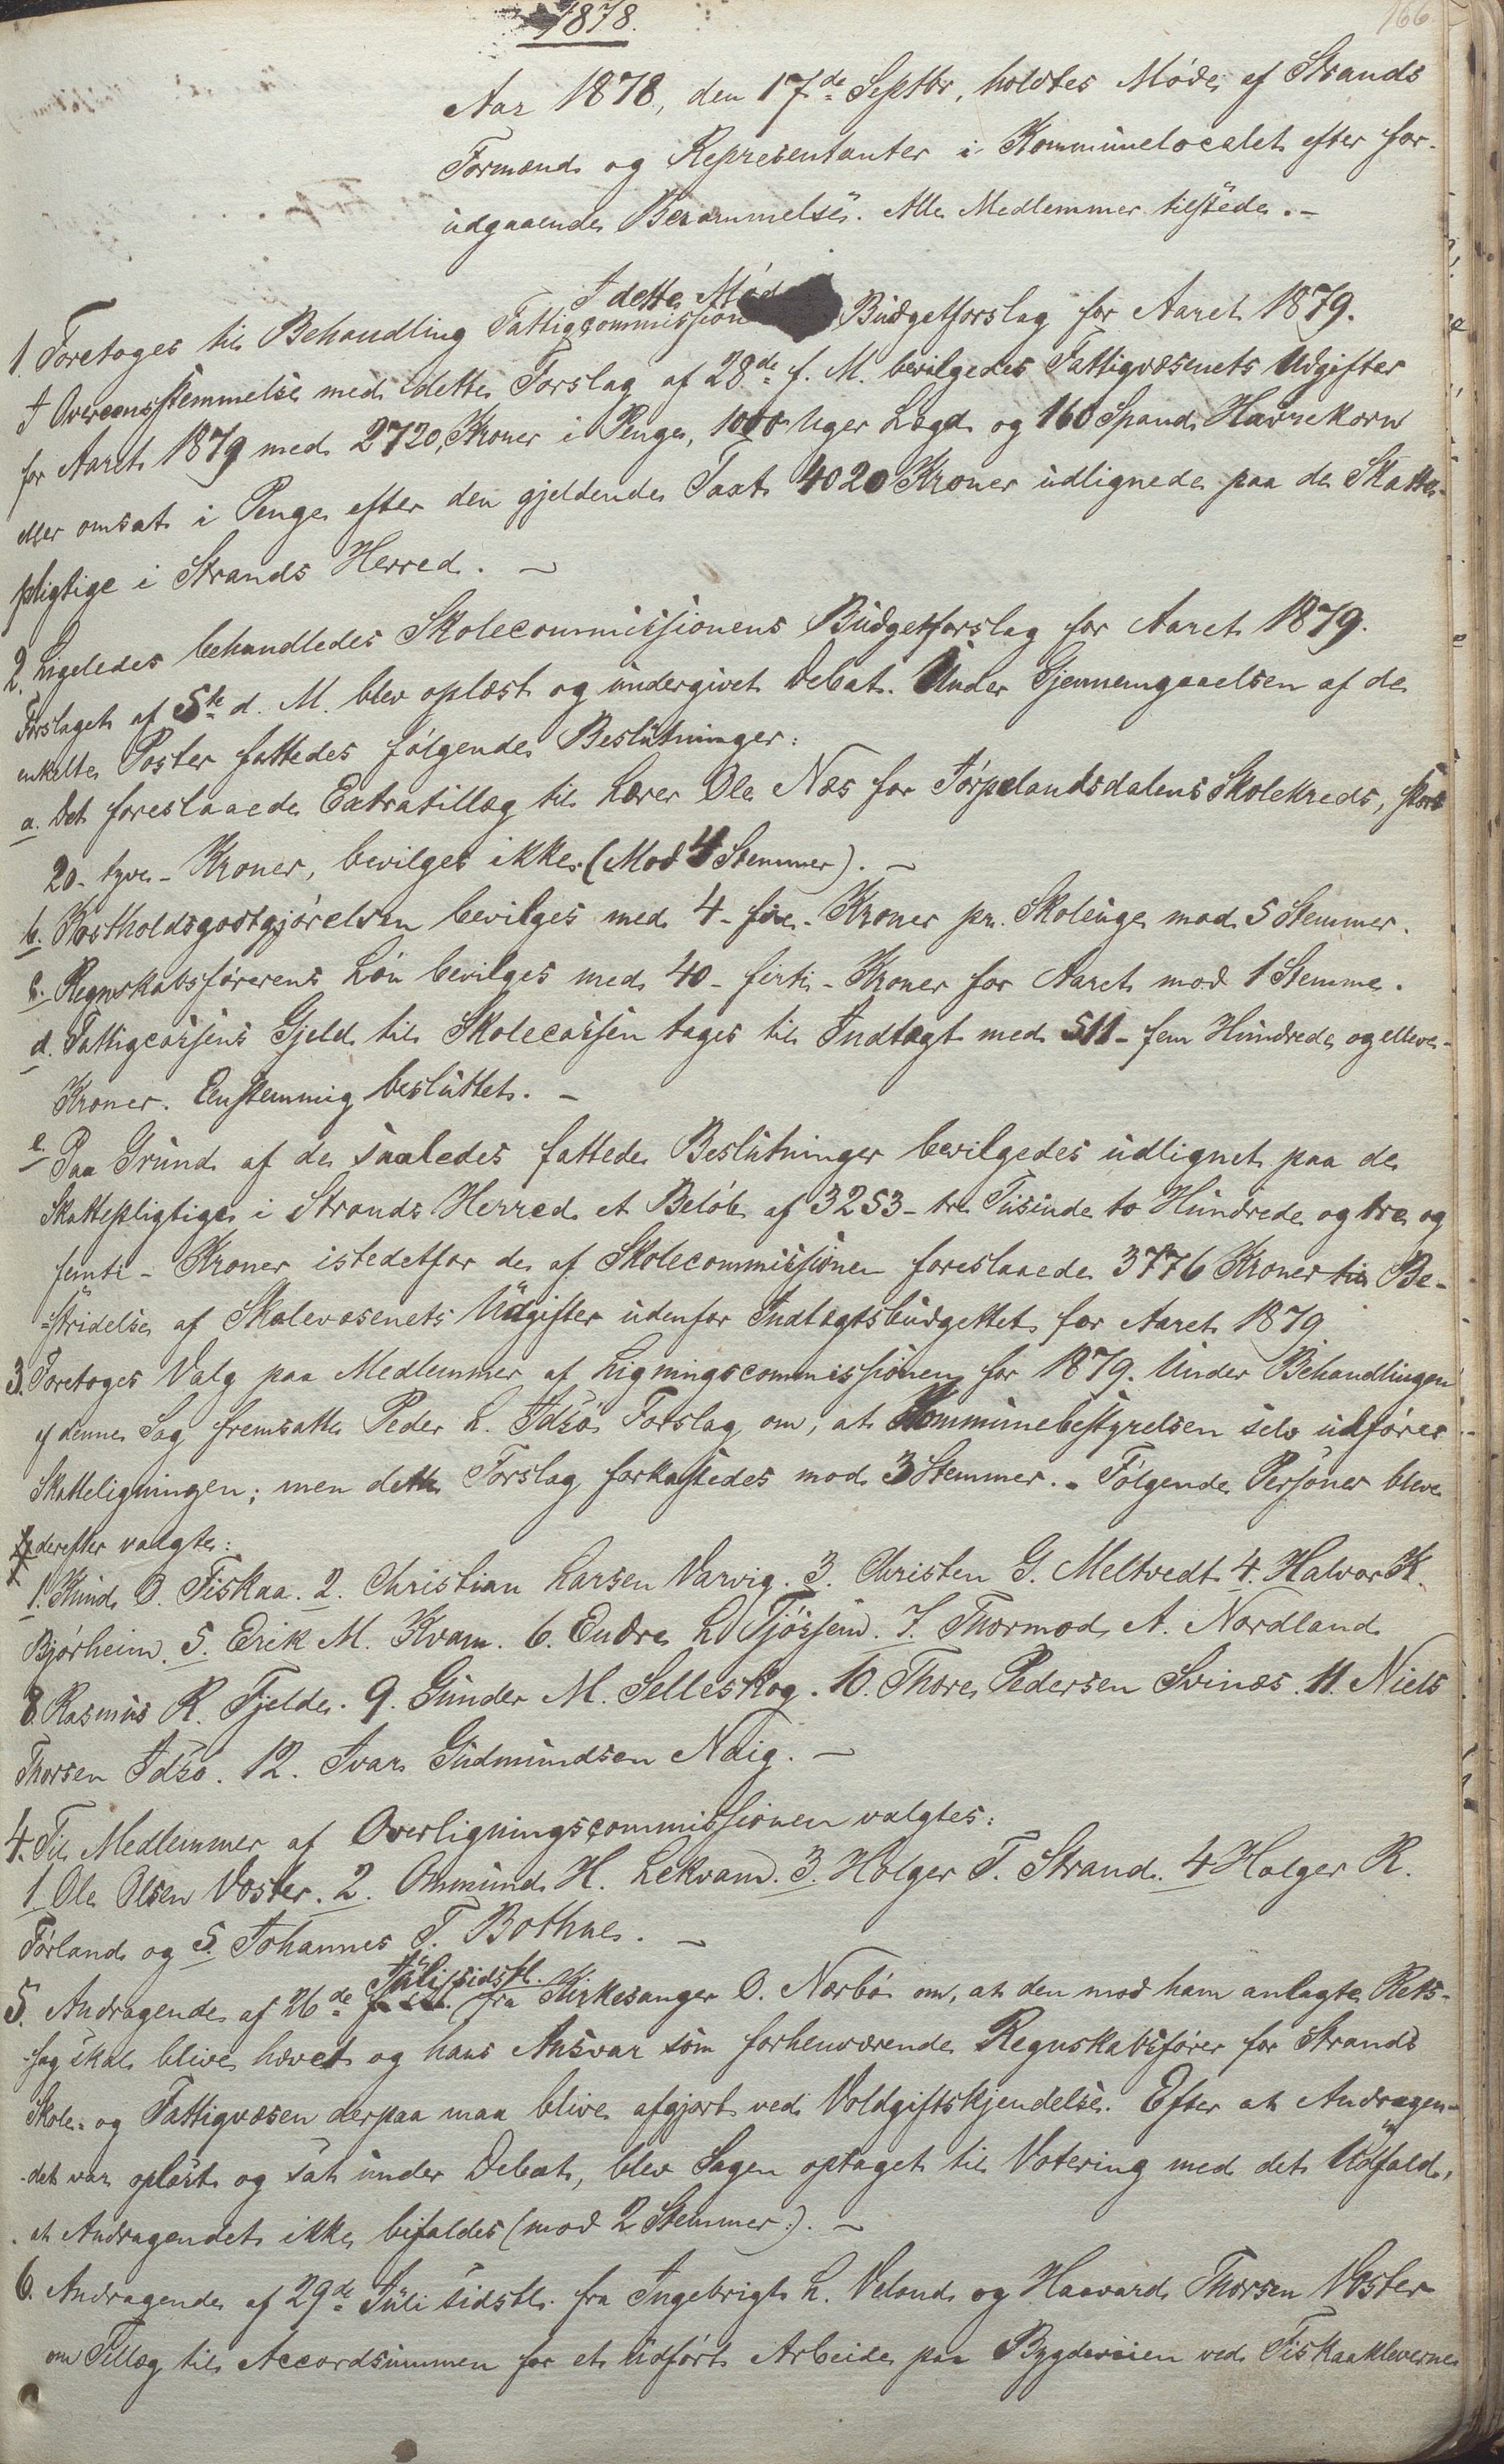 1878.
166.
Aar 1878, den 17de Septbr, holdtes Møde af Strands
Formænd og Representanter i Kommunelocalet efter for-
udgaaende Berammelse. Alle Medlemmer tilstede.-
I dette Møde
1. Foretoges til Behandling Fattigcommission Budgetforslag for Aaret 1879.
I Overeensstemmelse med dette Forslag af 28de f. M. bevilgedes Fattigvæsenets Udgifter
for Aaret 1879 med 2720 Kroner i Penge, 1000 Uger Lægd og 160 Spand Havrekorn
eller omsat i Penge efter den gjeldende Taxt 4020 Kroner udlignede paa de Skatte-
pligtige i Strands Herred. -
2. Ligeledes behandledes Skolecommissionens Budgetforslag for Aaret 1879.
Forslaget af 5te d. M. blev oplæst og undergivet Debat. Under Gjennemgaaelsen af de
enkelte Poster fattedes følgende Beslutninger:
a. Det foreslaaede Extratillæg til Lærer Ole Næs for Tørpelandsdalens Skolekreds, stort
20- tyve- Kroner, bevilges ikke (Mod 4 Stemmer). -
b. Kostholdsgodtgjørelsen bevilges med 4- fire- Kroner pr. Skoleuge mod 5 Stemmer.
c. Regnskabsførerens Løn bevilges med 40- firti- Kroner for Aaret mod 1 Stemme.
d. Fattigcassens Gjeld til Skolecassen tages til Indtægt med 511- fem Hundrede og elleve-
Kroner. Enstemmig besluttet. -
e. Paa Grund af de saaledes fattede Beslutninger bevilgedes udlignet paa de
Skattepligtige i Strands Herred et Beløb af 3253- tre Tusinde to Hundrede og tre og
femti- Kroner istedetfor de af Skolecommissionen foreslaaede 3776 Kroner til Be-
stridelse af Skolevæsenets Udgifter udenfor Indtægtsbudgettet for Aaret 1879
3. Foretoges Valg paa Medlemmer af Ligningscommissionen for 1879. Under Behandlingen
af denne Sag fremsatte Peder L. Idsø Forslag om, at Kommunebestyrelsen selv udfører
Skatteligningen; men dette Forslag forkastedes mod 3 Stemmer. - Følgende Personer bleve
derefter valgte:
1. Knud O. Fiskaa. 2. Christian Larsen Varvig. 3. Christen G. Meltvedt 4. Halvor K.
Bjørheim. 5. Erik M. Kvam. 6. Endre L Tjøssem. 7. Thormod A. Nordland
8. Rasmus R. Fjelde. 9. Gunder M. Selleskog. 10. Thore Pedersen Svinæs. 11. Niels
Thorsen Idsø. 12. Ivar Gudmundsen Ndig. -
4. Til Medlemmer af Overligningscommissionen valgtes:
1. Ole Olsen Voster. 2. Ommund H. Lekvam. 3. Holger T. Strand. 4 Holger R.
Førland og 5. Johannes T. Bothne. -
Juli sidstl.
5. Andragende af 26de fra Kirkesanger O. Nærbø om, at den mod ham anlagte Rets-
sag skal blive hævet og hans Ansvar som forhenværende Regnskabsfører for Strands
Skole- og Fattigvæsen derpaa maa blive afgjort ved Voldgiftskjendelse. Efter at Andragen-
det var oplæst og sat under Debat, blev Sagen optaget til Votering med det Udfald,
at Andragendet ikke bifaldes (mod 2 Stemmer). -
6. Andragende af 29de Juli sidstl. fra Ingebrigt L. Veland og Haavard Thorsen Voster
om Tillæg til Accordsummen for et udført Arbeide paa Bygdeveien ved Fiskaaklevene